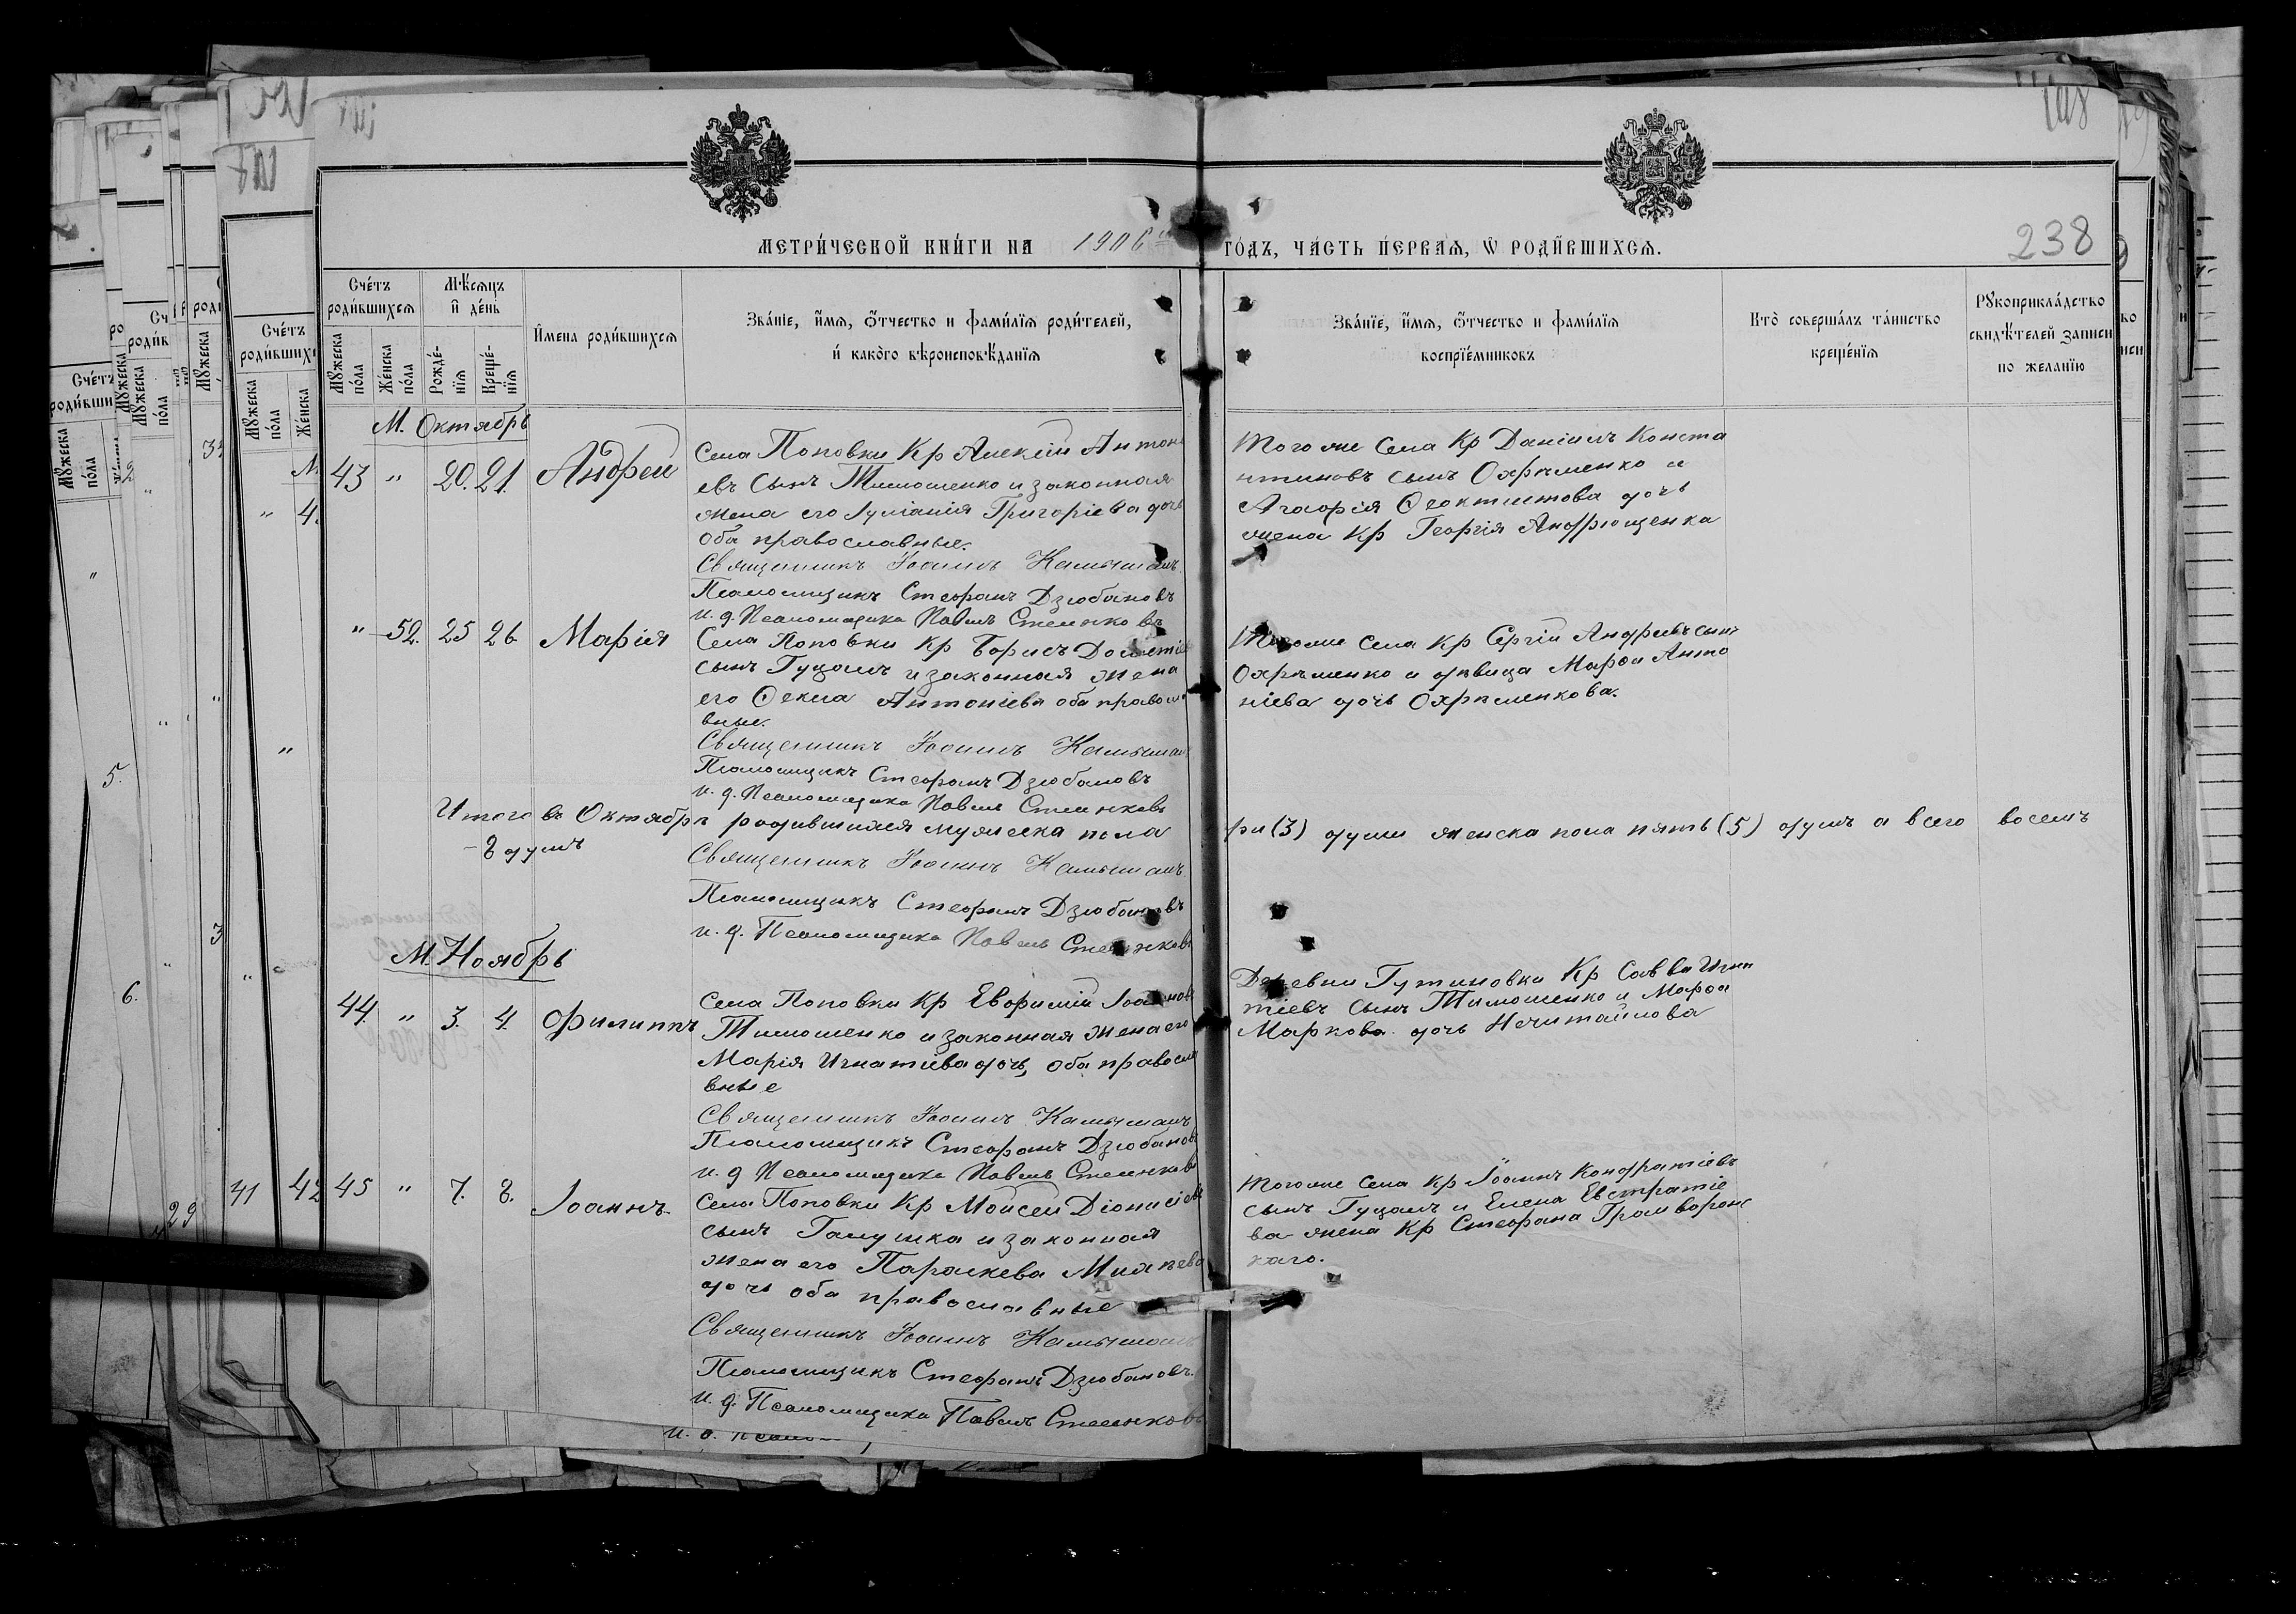 238
МЕТРИ́ЧЕСКОЙ КНИ́ГИ НА 1906 ГО́ДЪ, ЧА́СТЬ ПЕ́РВАЯ, Ѡ РОДИ́ВШИХСЯ.
Сче́тъ роди́вшихся
Мѣ́сяцъ и де́нь
Имена роди́вшихся
Зва́нїе, и́мя, о́тчество и фами́лїя роди́телей,
и како́го вѣроисповѣ́данїя
Зва́нїе, и́мя, о́тчество и фами́лїя
воспрїе́мниковъ
Кто̀ соверша́лъ та́инство
креще́нїя
Рукоприкла́дство
свидѣ́телей записи
по жела́нїю
Мꙋ́жеска по́ла
Же́нска по́ла
Рожде́-нїя
Креще́-нїя
М. Октябрь
43 " 20. 21. Андрей
Села Поповки Кр Алексій Антоні
евъ сынъ Тимошенко и законная
жена его Гуліанія Григоріева дочь
Оба православные.
Священникъ Іоаннъ Камышанъ
Псаломщикъ Стефанъ Дзюбановъ
И. д. Псаломщика Павелъ
Того же Села Кр Даніилъ Конста
нтиновъ сынъ Охрѣменко и
Агафія Ѳеоктистова дочь
жена Кр Георгія Андрющенка
" 52. 25 26 Марія
Села Поповки Кр Борисъ
сынъ Гуцалъ и законная жена
его Ѳекла Антоніева оба правосла
вные.
Священникъ Іоаннъ Камышанъ
Псаломщикъ Стефанъ Дзюбановъ
И. д. Псаломщика Павелъ
Того же Села Кр Сергій Андреевъ сынъ
Охрѣменко и дѣвица Марфа Анто
ніева дочь Охрѣменкова.
Итого въ Октябрѣ родившихся мужеска пола
ри (3) души женска пола пять (5) душъ а всего восемъ
- 8 душъ
Священникъ Іоаннъ Камышанъ
Псаломщикъ Стефанъ Дзюбановъ
И. д. Псаломщика Павелъ
М. Ноябрь
44. " 3. 4. Филиппъ
Села Поповки Кр Евфимій Іоанновъ
Тимошенко и законная жена его
Марія Игнатіева дочь, оба правосла
вные
Священникъ Іоаннъ Камышанъ
Псаломщикъ Стефанъ Дзюбановъ
И. д Псаломщика Павелъ
Деревни Гутиновки Кр Савва Игна
тіевъ сынъ Тимошенко и Марфа
Маркова дочь Нечитайлова
45 " 7. 8. Іоаннъ.
Села Поповки Кр Моисей Діонисіевъ
сынъ Галушка и законная
жена его Параскева
дочь оба православные
Священникъ Іоаннъ Камышанъ
Псаломщикъ Стефанъ Дзюбановъ.
И. д. Псаломщика Павелъ
Того же Села Кр Іоаннъ Кондратіевъ
сынъ Гуцалъ и Елена Евстратіе
ва жена Кр Стефана Грайворонс
каго.